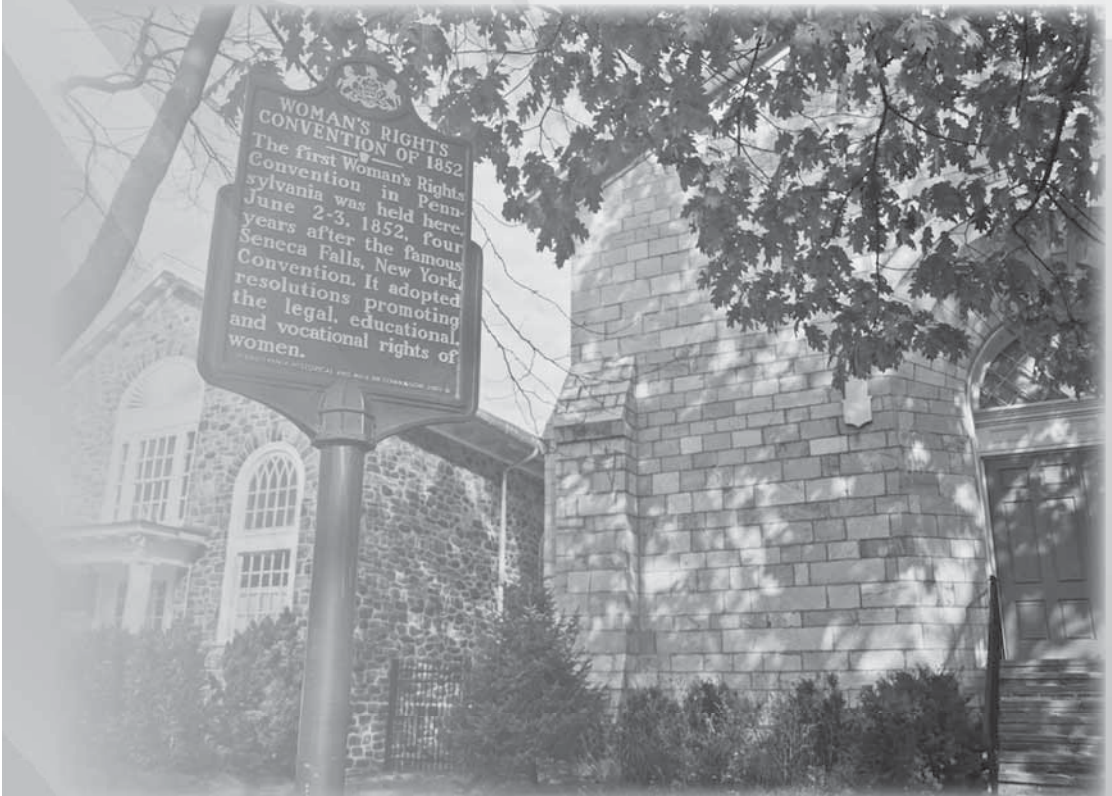 WOMAN'S RIGHTS
CONVENTION OF 1852
The first Woman's Rights
Convention in Penn-
sylvania was held here,
June 2-3, 1852, four
years after the famous
Seneca Falls, New York,
Convention. It adopted
resolutions promoting
the legal, educational,
and vocational rights of
women.